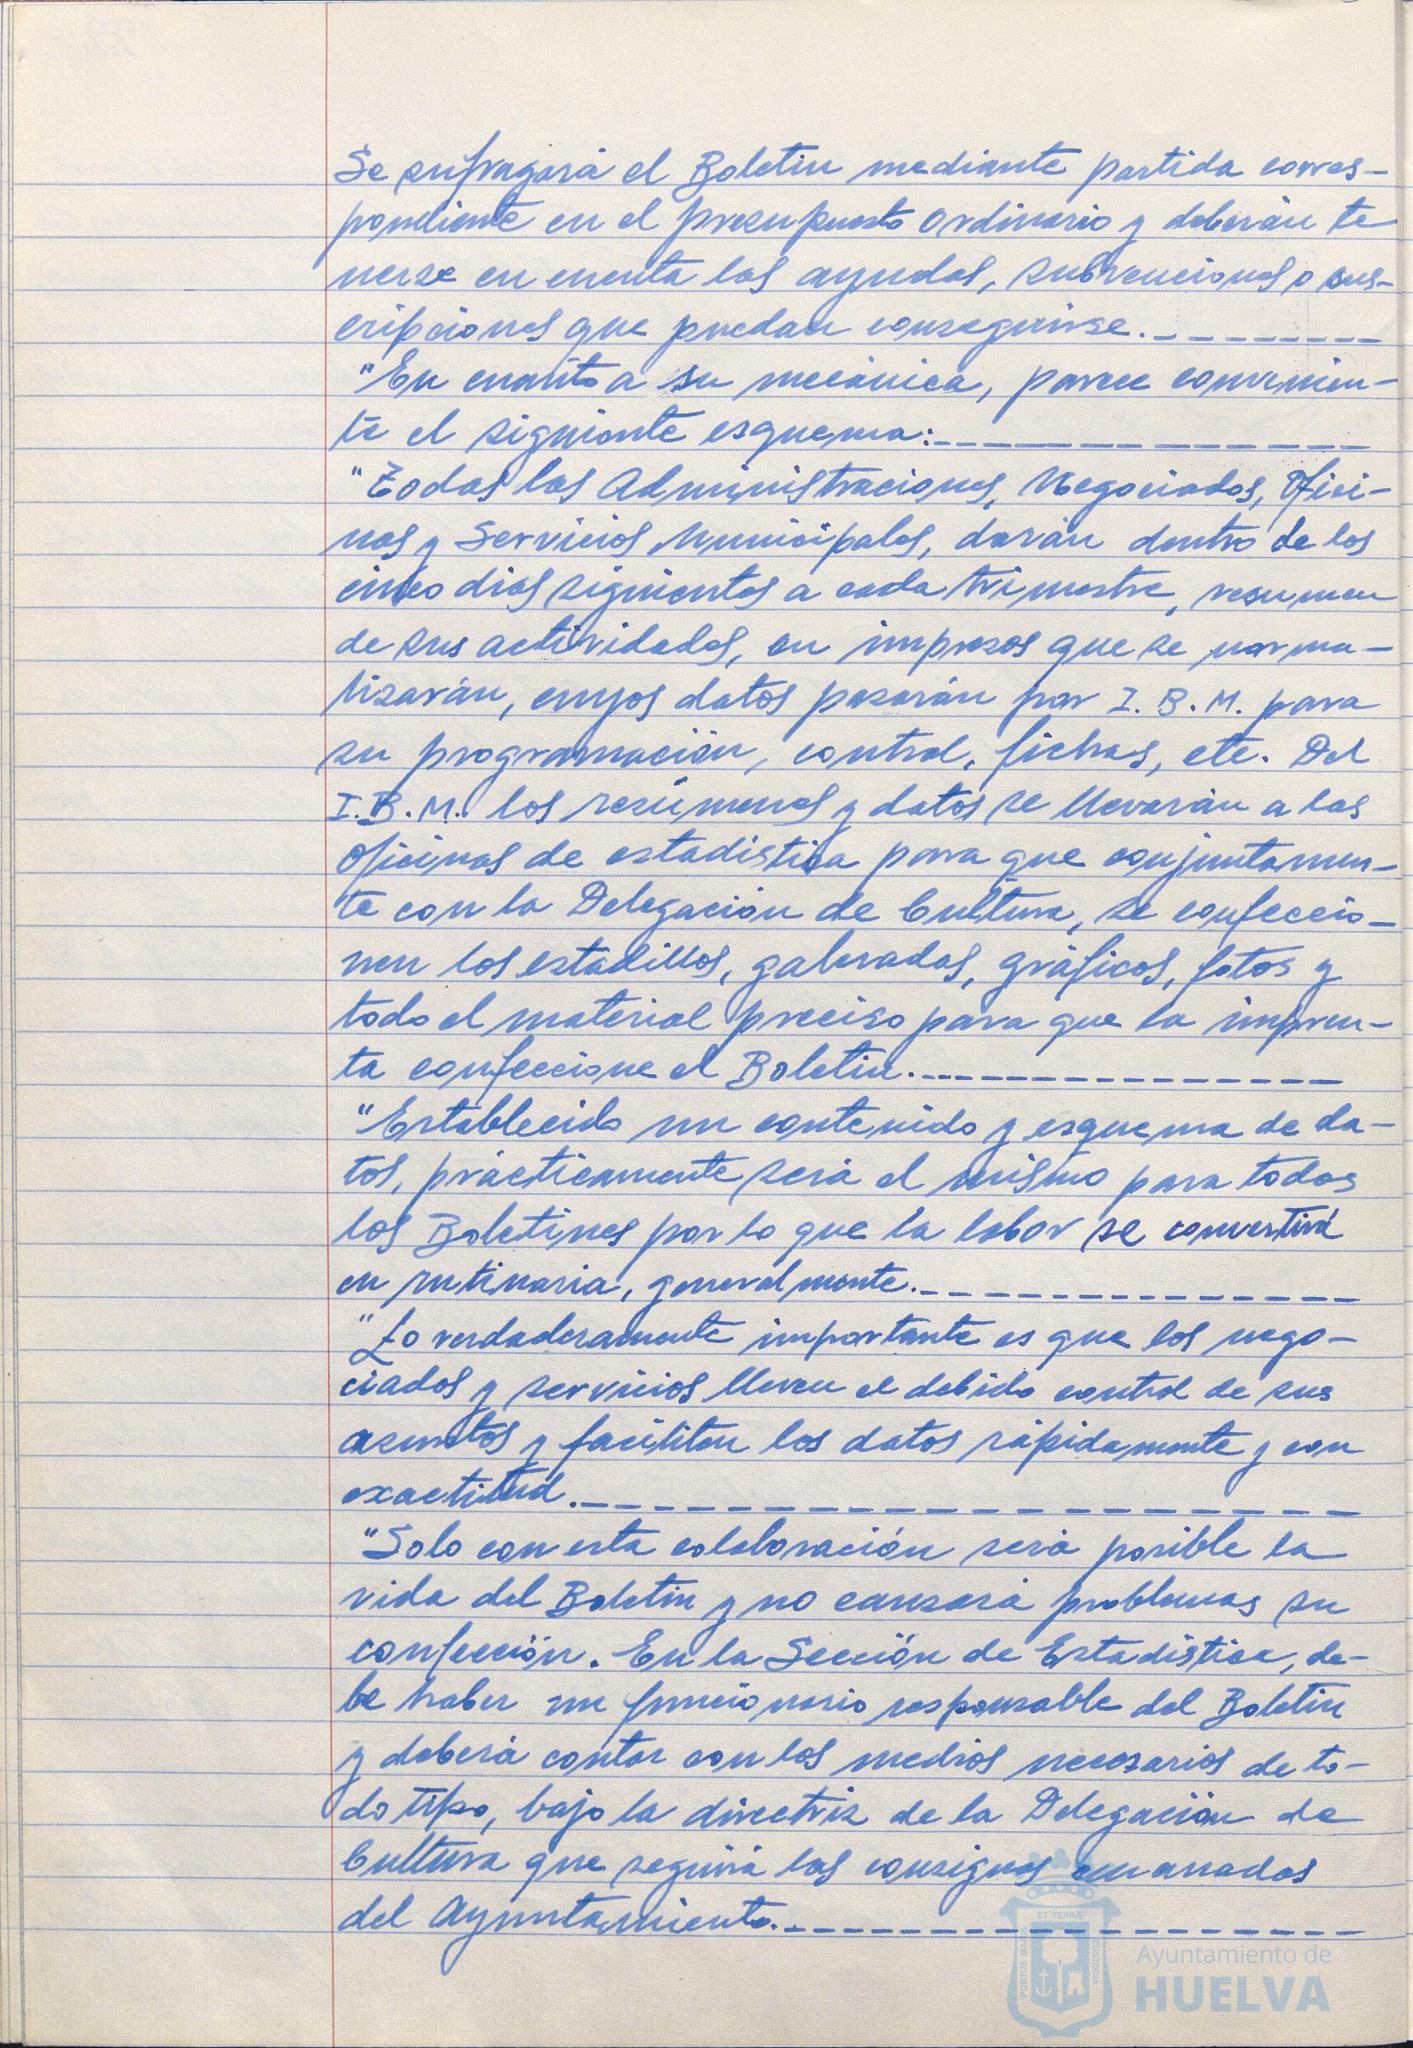 Se sufragará el Boletin mediante partida corres-
pondiente en el presupuesto ordinario y deberán te
nerse en cuenta las ayudas, subvenciones o sus-
cripciones que puedan conseguirse.
"En cuanto a su mecánica, parece convenien-
te el siguiente esquema:
"Todas las Administraciones, Negociados, Ofici-
nas y Servicios Municipales, darán dentro de los
cinco dias siguientes a cada trimestre, resumen
de sus actividades, en impresos que se norma-
lizarán, cuyos datos pasarán por I.B.M. para
su programación, control, fichas, etc. Del
I.B.M. los resúmenes y datos se llevarán a las
oficinas de estadistica para que conjuntamen-
te con la Delegación de Cultura, se confeccio-
nen los estadillos, galeradas, gráficos, fotos y
todo el material preciso para que la impren-
ta confeccione el Boletin.
"Establecido un contenido y esquema de da-
tos, prácticamente será el mismo para todos
los Boletines por lo que la labor se convertirá
en rutinaria, generalmente.
"Lo verdaderamente importante es que los nego-
ciados y servicios lleven el debido control de sus
asuntos y faciliten los datos rápidamente y con
exactitud.
"Solo con esta colaboración será posible la
vida del Boletin y no causará problemas su
confección. En la Sección de Estadistica, de-
be haber un funcionario responsable del Boletin
y deberá contar con los medios necesarios de to-
do tipo, bajo la directriz de la Delegación de
Cultura que seguirá las consignas emanadas
del Ayuntamiento.
PORTUS MARIS ET TERRAE CUSTODIA
Ayuntamiento de
HUELVA